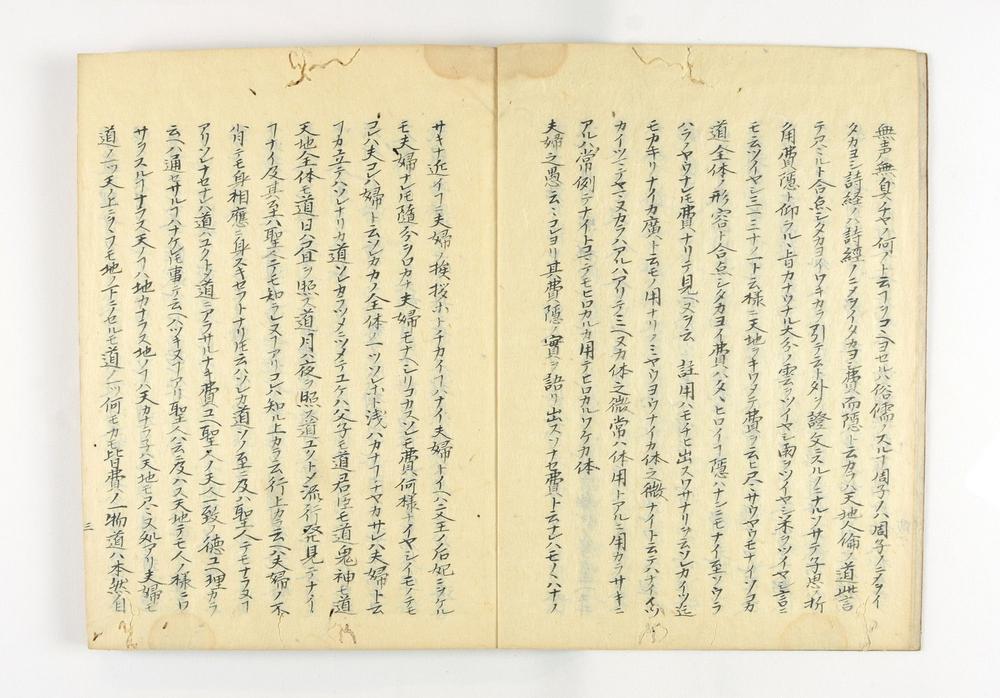 無声無臭ノチヤノ何ノト云フヲコヽヨセルハ俗儒ノスルコト周子ノハ周子ノニテヨイ
タカヨシ詩経ノハ詩経ノニメヲイタカヨシ費而隠ト云カラハ天地人倫ノ道
テアミルト合点シタカヨイワキカラ引テ云ト外ヲ證文ミスルノニナルソサテ子思ノ折
角費隠ト仰ラル、旨カナウナル大今ノ雲ヲツイヤシ雨ヲツイヤシ木ヲツイヤシ言ニ
モ云ツイヤシミ三ナノコト云様ニ天地ヲキワメテ費ヲ云
道全体ノ形容ト合点シタカヨイ費ハタヽヒロイコト隠ハナンニモナイ至ツウラ
ハラノヤウナレ𪜈費ナリテ見ヘヌヲ云 註用ハモチヒ出スワサナリヲ云ソレカイツ迄
モカキリナイカ廣ト云モノ用ナリノミヤウヨウナイカ体之微 ナイト云テハナイイツ
カイツニテヤマヌカラハアルハアリテミヘヌカ体之微常ハ体用トアルニ用カラサキニ
アルハ常例テナイトコヽテモヒロカルカ用テヒロカルワケカ体
夫婦之愚云ミコレヨリ其費隠ノ實ヲ語リ出スソナセ費ト云ナレハモノヽハナノ
サキナ近イコト夫婦ノ挨拶ホトチカイコトハナイ夫婦トイヘハ文王ノ后妃ニヲケル
モ夫婦ナレ𪜈随分ヲロカナ夫婦モナヘシリコカスソモ費何様ナイヤシイモノテモ
コレハ夫コレハ婦ト云ソレカカノ全体ノ一ツソレホト浅ハカナコトチヤカサレハ夫婦ト云
コトカ立テハソレナリカ道ソレカラツメニツメテユケハ父子モ道君臣モ道鬼神モ道
天地全体モ道日ハ昼ヲ照ス道月ハ夜ヲ照ス道ユクトメ流行発見テナイ
コトナイ及其至ハ聖人テモ知ラレヌコトアリコレハ知ル上カラ云行上カラ云ヘハ夫婦ノ不
肖テモ身相應ニ身スキセフトナリ𪜈云ハソレカ道ソノ至ニ及ハ聖人テモナラヌコト
アリソレナセナレハ道ハユクトメ道ニアラサルナキ費ユヘ聖人ノ夫人一致ノ徳ユヘ理カラ
云ヘハ通セサルコトハナケレ𪜈事テ云ヘハツキヌコトアリ聖人ハ云ニ及ハス天地テモノノ様ニワ
サヲスルコトナラヌ天ノコトハ地カナラス地ノコトハ天カナラス天地モアミヌ処アリ夫婦モ
道ノ一ツ天ノ上ニアルコトモ地ノ下ニノセルモ道ノ一ツ何モカモ皆費ノ一物道ハ本然自
三